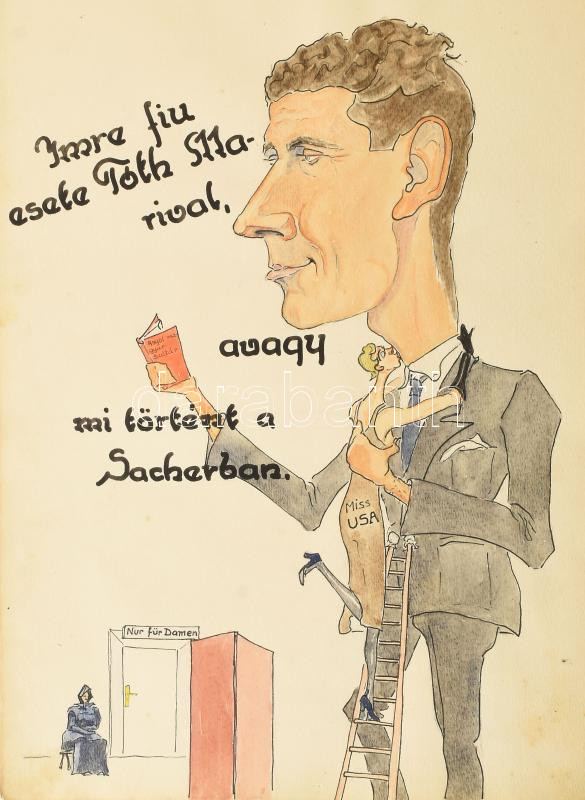 Imre fiu
esete Tóth Ma-
rival,
avagy
mi történt a
Sacherban.
Miss
USA
Nur für Damen
darabanth